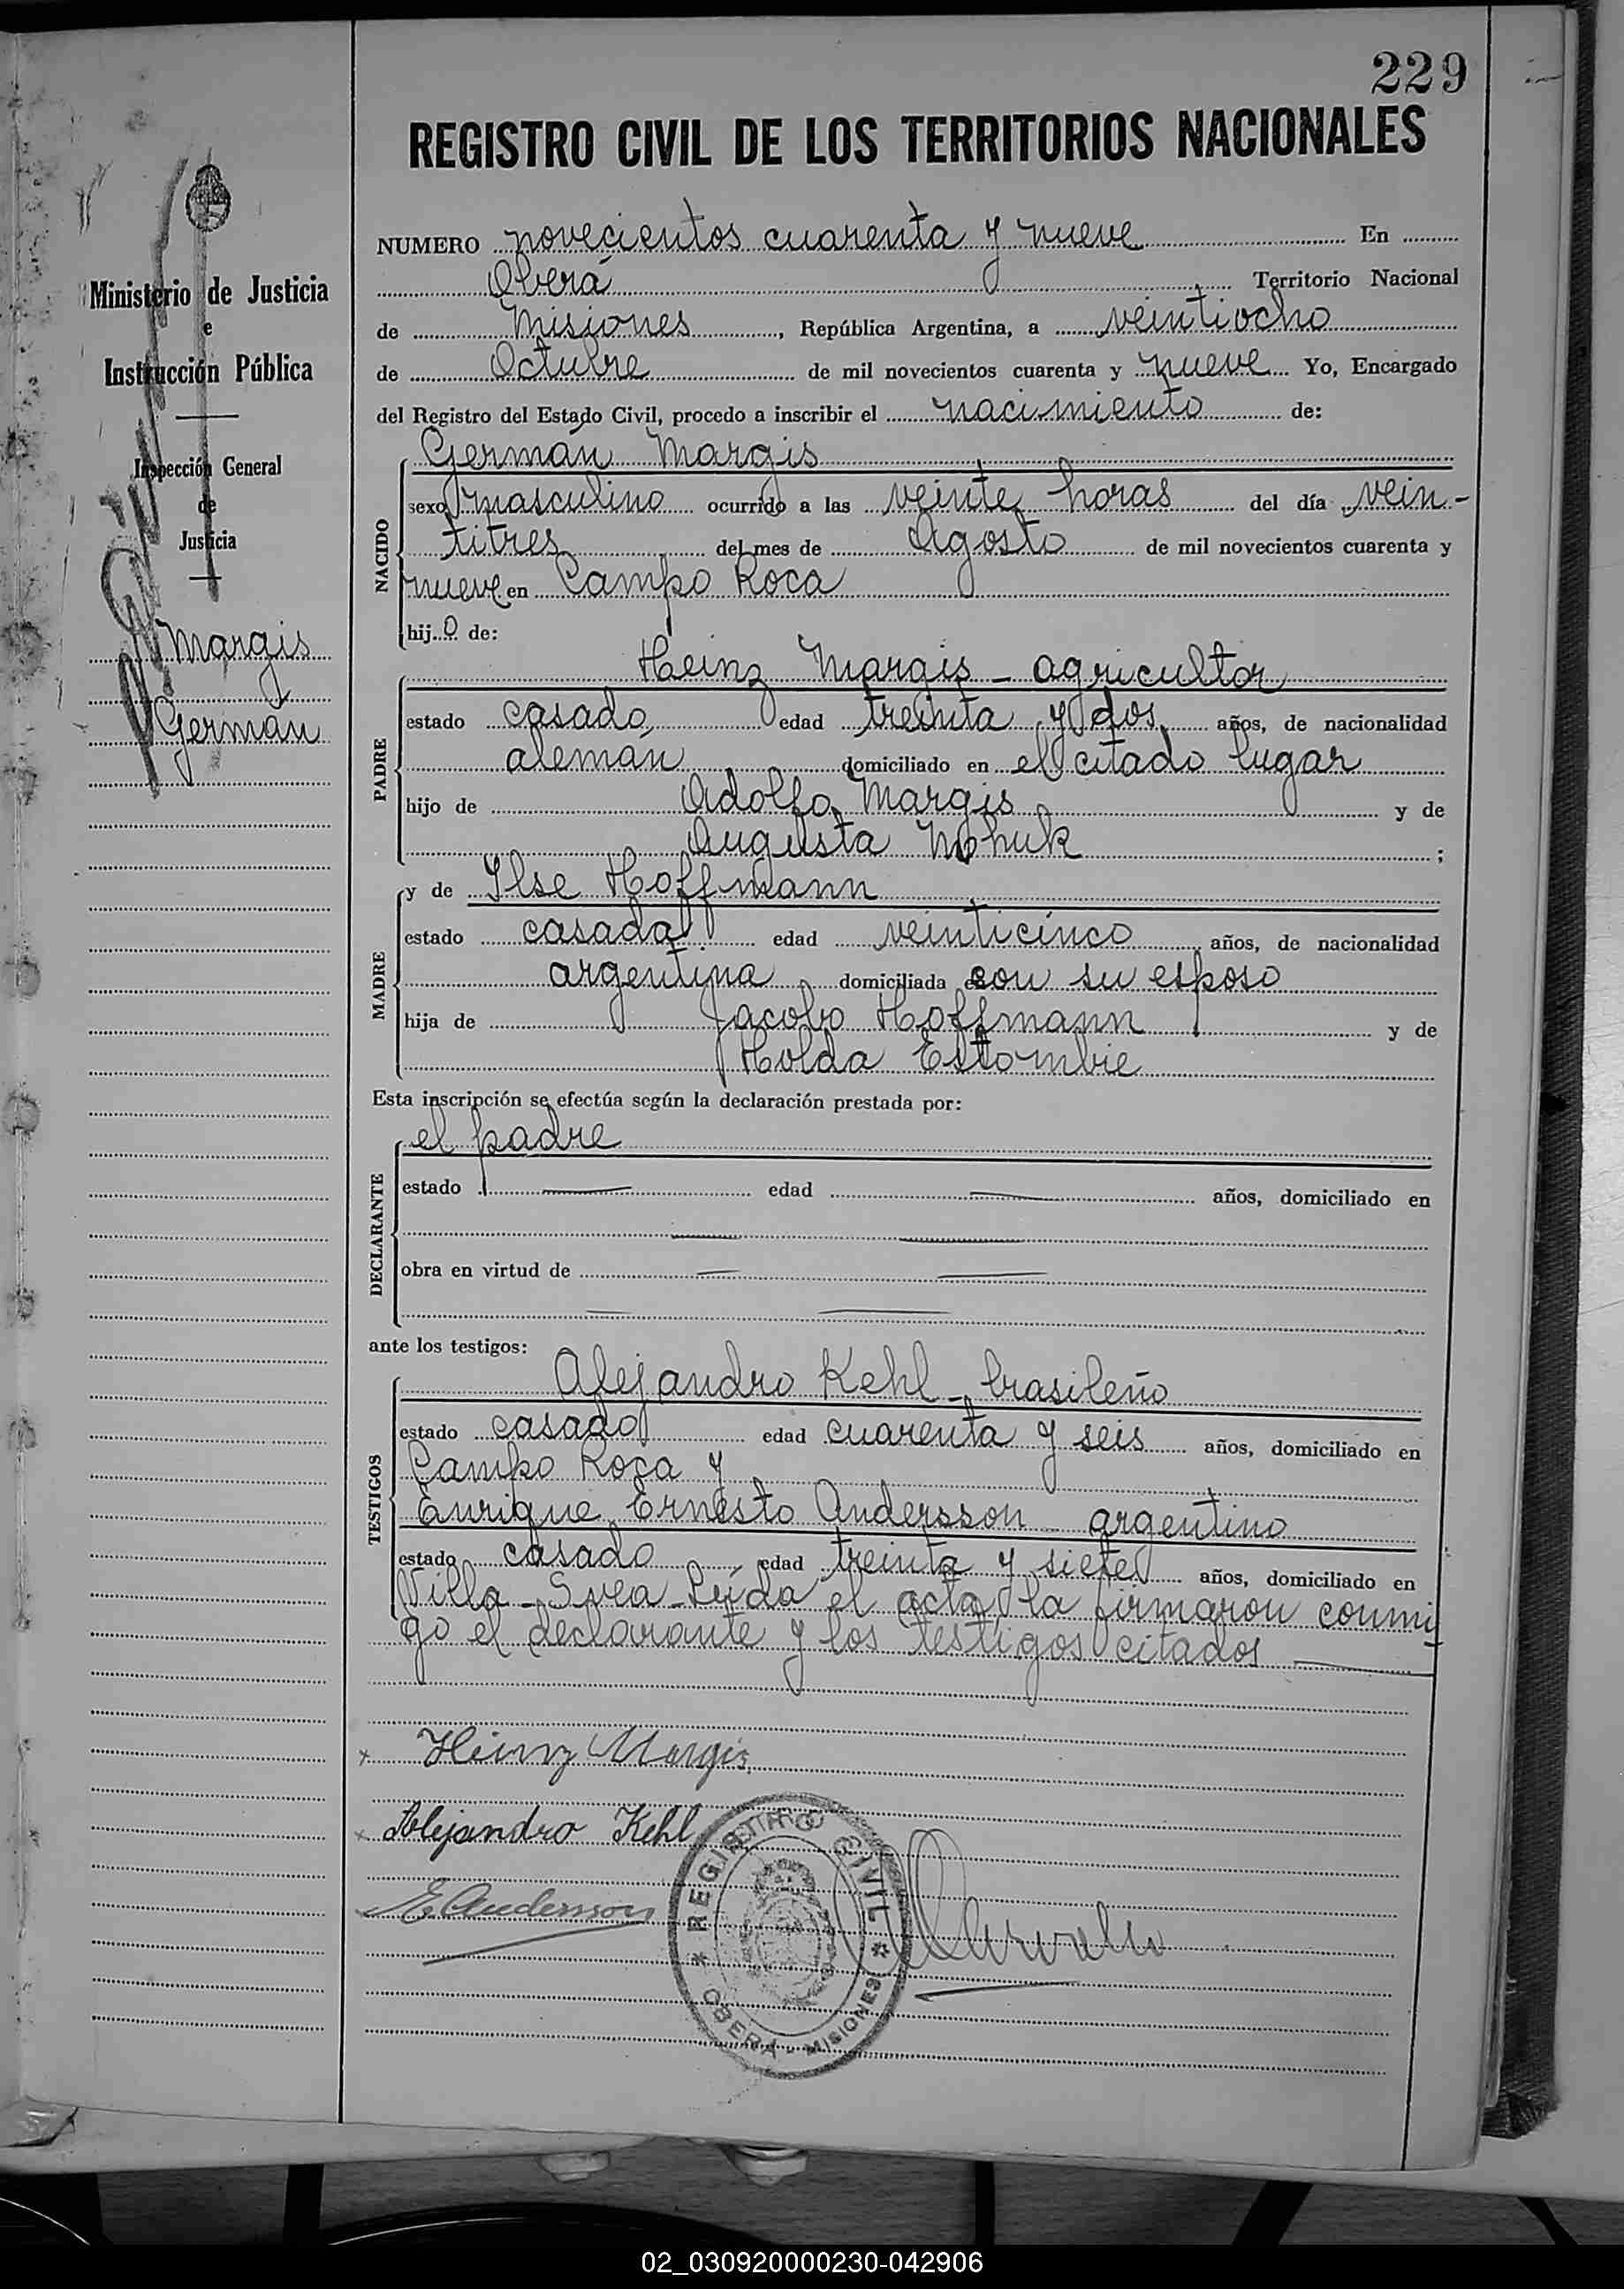 229
REGISTRO CIVIL DE LOS TERRITORIOS NACIONALES
Ministerio de Justicia
e
Instrucción Pública
Inspección General
de
Justicia
Margis
Germán
NUMERO novecientos cuarenta y nueve En
Oberá Territorio Nacional
de Misiones, República Argentina, a veintiocho
de Octubre de mil novecientos cuarenta y nueve Yo, Encargado
del Registro del Estado Civil, procedo a inscribir el nacimiento de:
NACIDO
Germán Margis
sexo masculino ocurrido a las veinte horas del día vein-
titres del mes de Agosto de mil novecientos cuarenta y
nueve en Campo Roca
hijo de:
PADRE
Heinz Margis - agricultor
estado casado edad treinta y dos años, de nacionalidad
alemán domiciliado en el citado lugar
hijo de Adolfo Margis y de
Augusta ;
MADRE
y de Ilse Hoffmann
estado casada edad veinticinco años, de nacionalidad
argentina domiciliada con su esposo
hija de Jacobo Hoffmann y de
Holda Estombie
Esta inscripción se efectúa según la declaración prestada por:
DECLARANTE
el padre
estado edad años, domiciliado en
obra en virtud de
ante los testigos:
TESTIGOS
Alejandro Kehl - brasileño
estado casado edad cuarenta y seis años, domiciliado en
Campo Roca y
Enrique Ernesto Andersson - argentino
estado casado edad treinta y siete años, domiciliado en
Villa - Svea - Leída el acta la firmaron conmi
go el declarante y los testigos citados
x Heinz Margis
x Alejandro Kehl
E. Andersson
REGISTRO CIVIL
OBERA - MISIONES
02_030920000230-042906